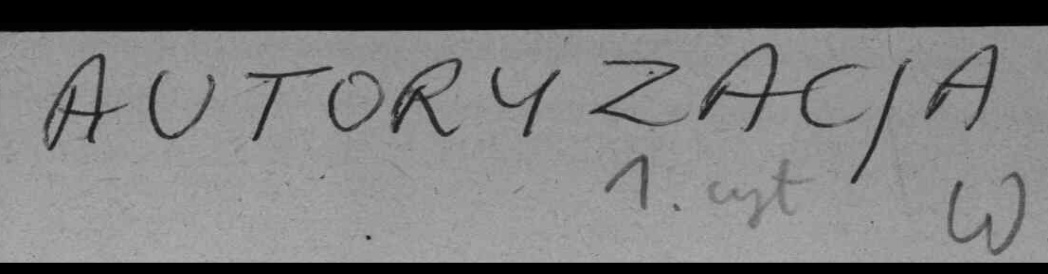 AUTORYZACJA
1. cyt W